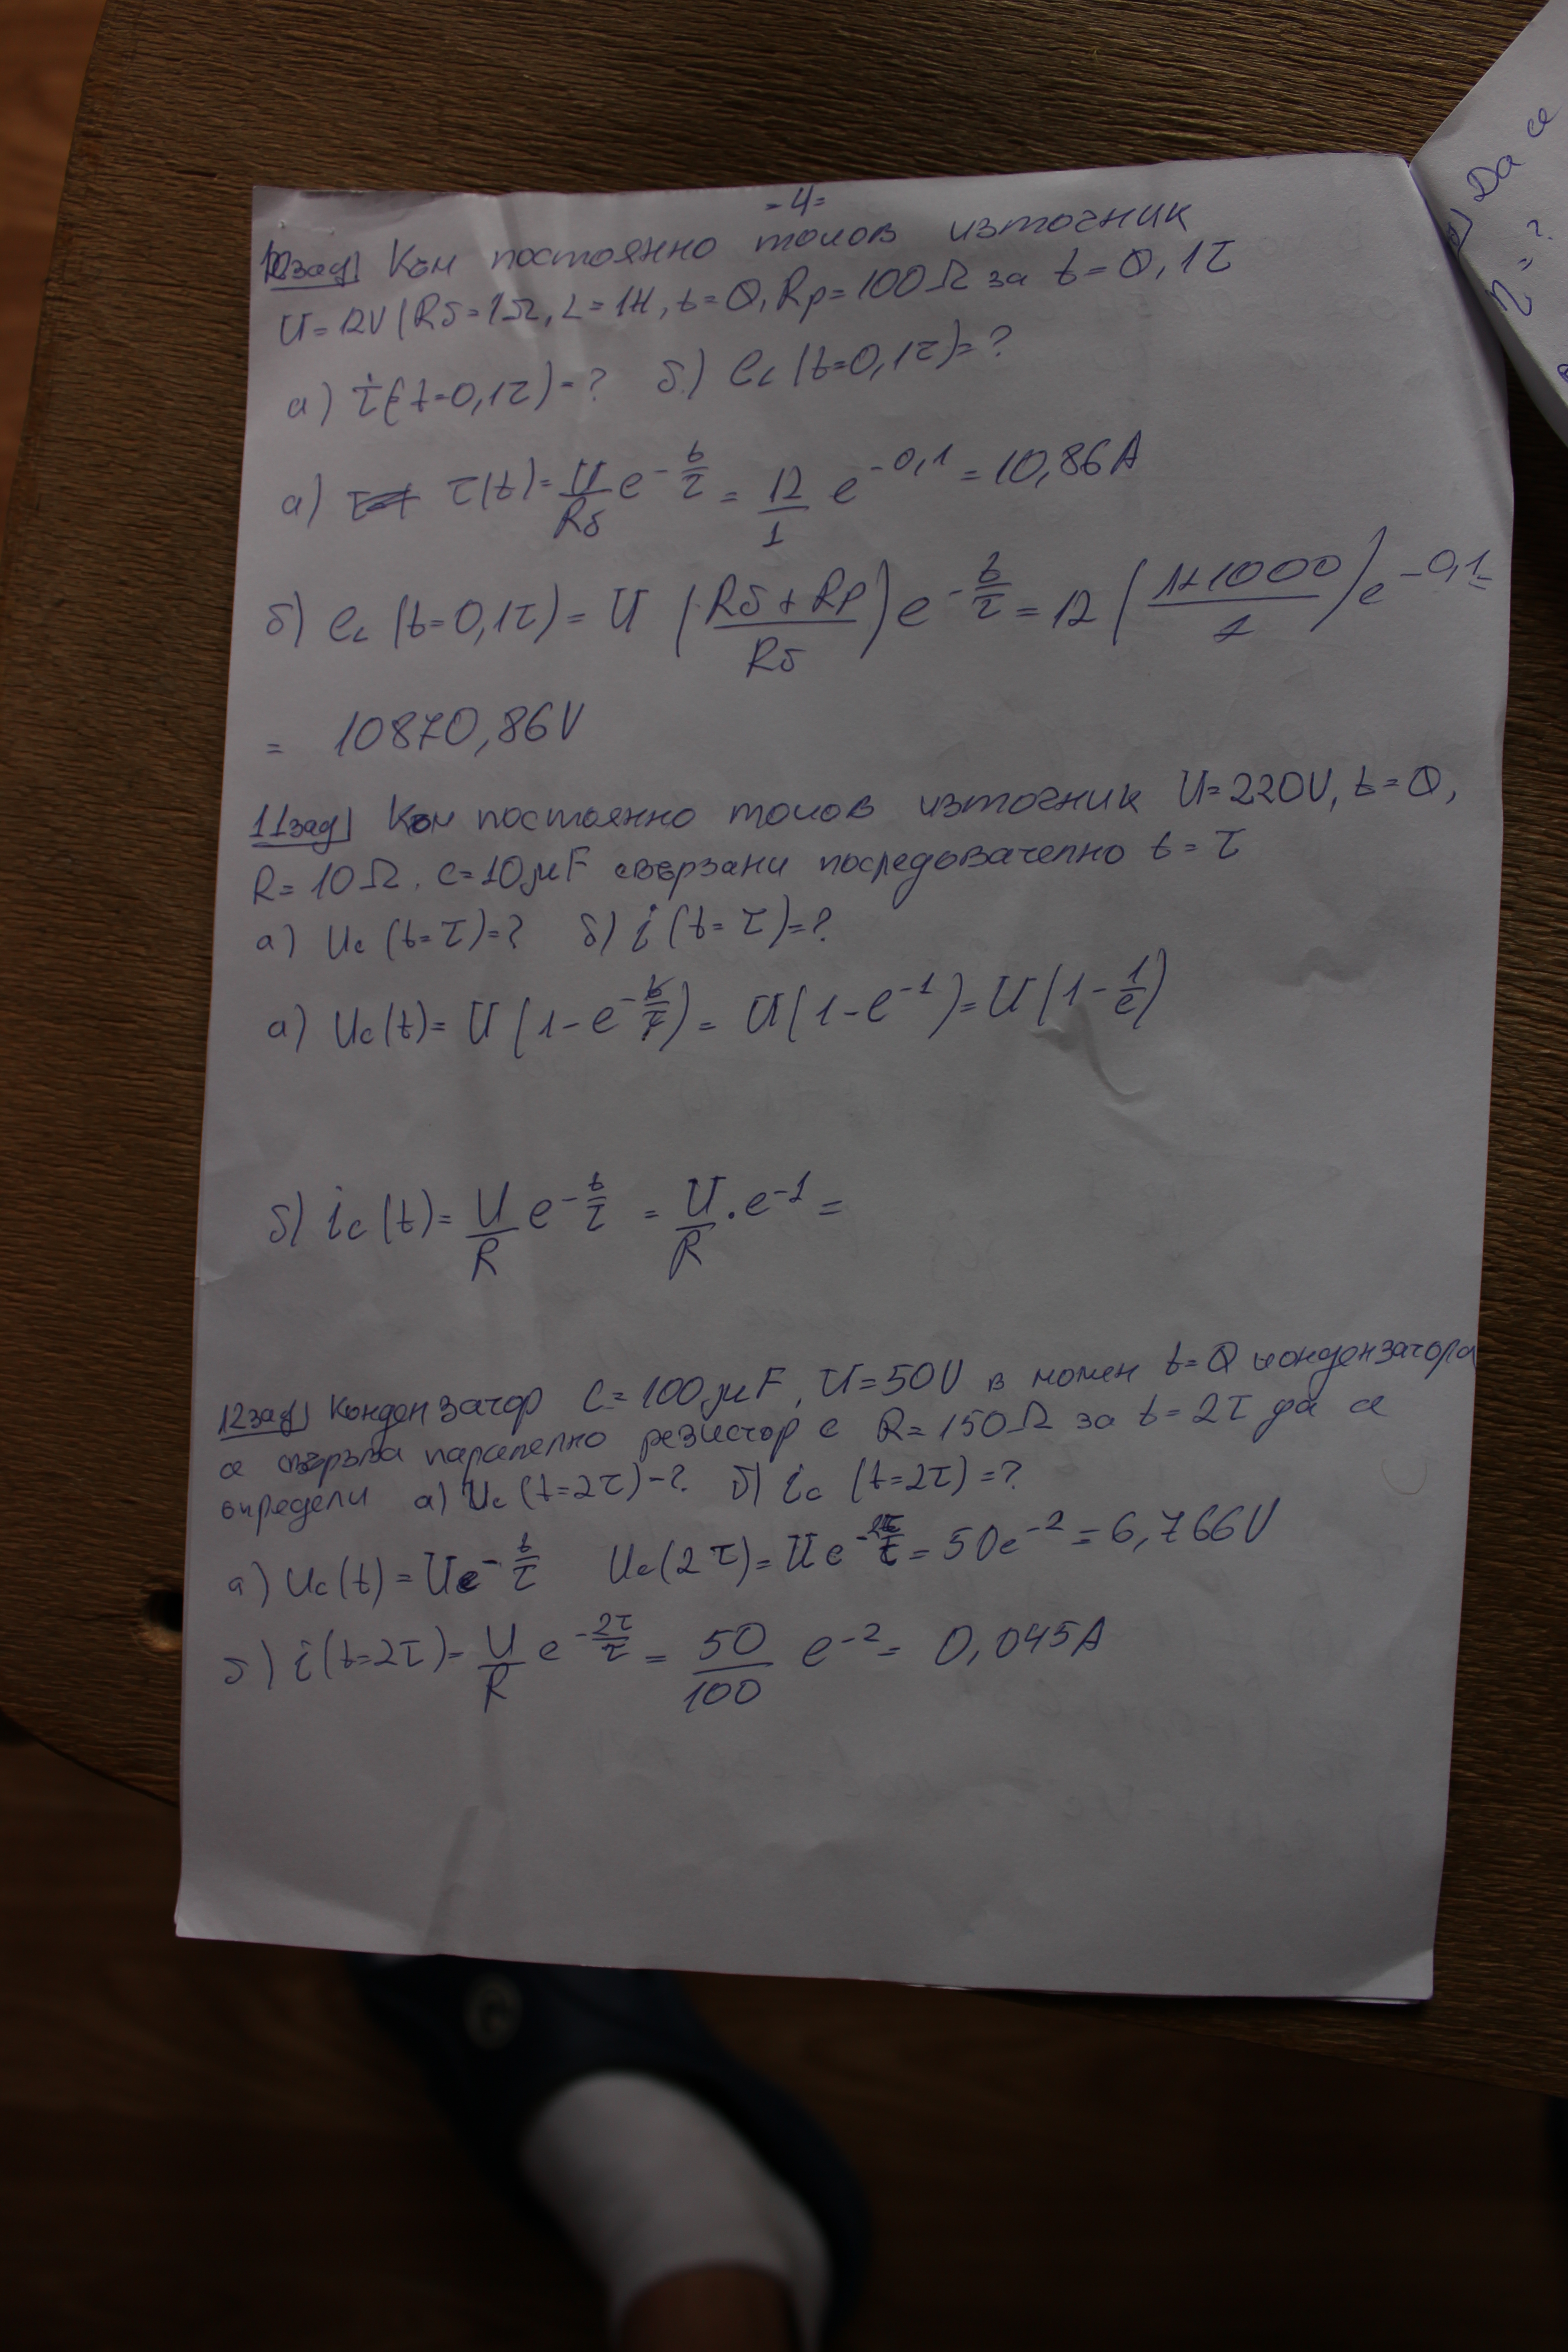 -4-
10зад| Към постоянно токов източник
U=12V (Rб=1Ω, L=1H, t=0, Rp=100Ω за t=0,1τ
а) i(t=0,1τ)=? б) eL (t=0,1τ)=?
а) τ(t)= U/Rб e^-t/τ = 12/1 e^-0,1 = 10,86A
б) eL (t=0,1τ)= U (Rб+Rp/Rб) e^-t/τ = 12 (1+1000/1) e^-0,1 =
= 10870,86V
11зад| Към постоянно токов източник U=220V, t=0,
R=10Ω, C=10μF свързани последователно t=τ
а) Uc (t=τ)=? б) i (t=τ)=?
а) Uc(t)= U (1-e^-t/τ) = U(1-e^-1)= U(1-1/e)
б) ic (t)= U/R e^-t/τ = U/R . e^-1 =
12зад| Кондензатор C=100μF, U=50V в момен t=0 кондензатора
се свързва паралелно резистор с R=150Ω за t=2τ да се
определи а) Uc (t=2τ)-? б) ic (t=2τ)=?
а) Uc(t)= Ue^-t/τ Uc(2τ)= Ue^-2τ/τ = 50e^-2 = 6,766V
б) i(t=2τ)= U/R e^-2τ/τ = 50/100 e^-2 = 0,045A
Да се
η=?